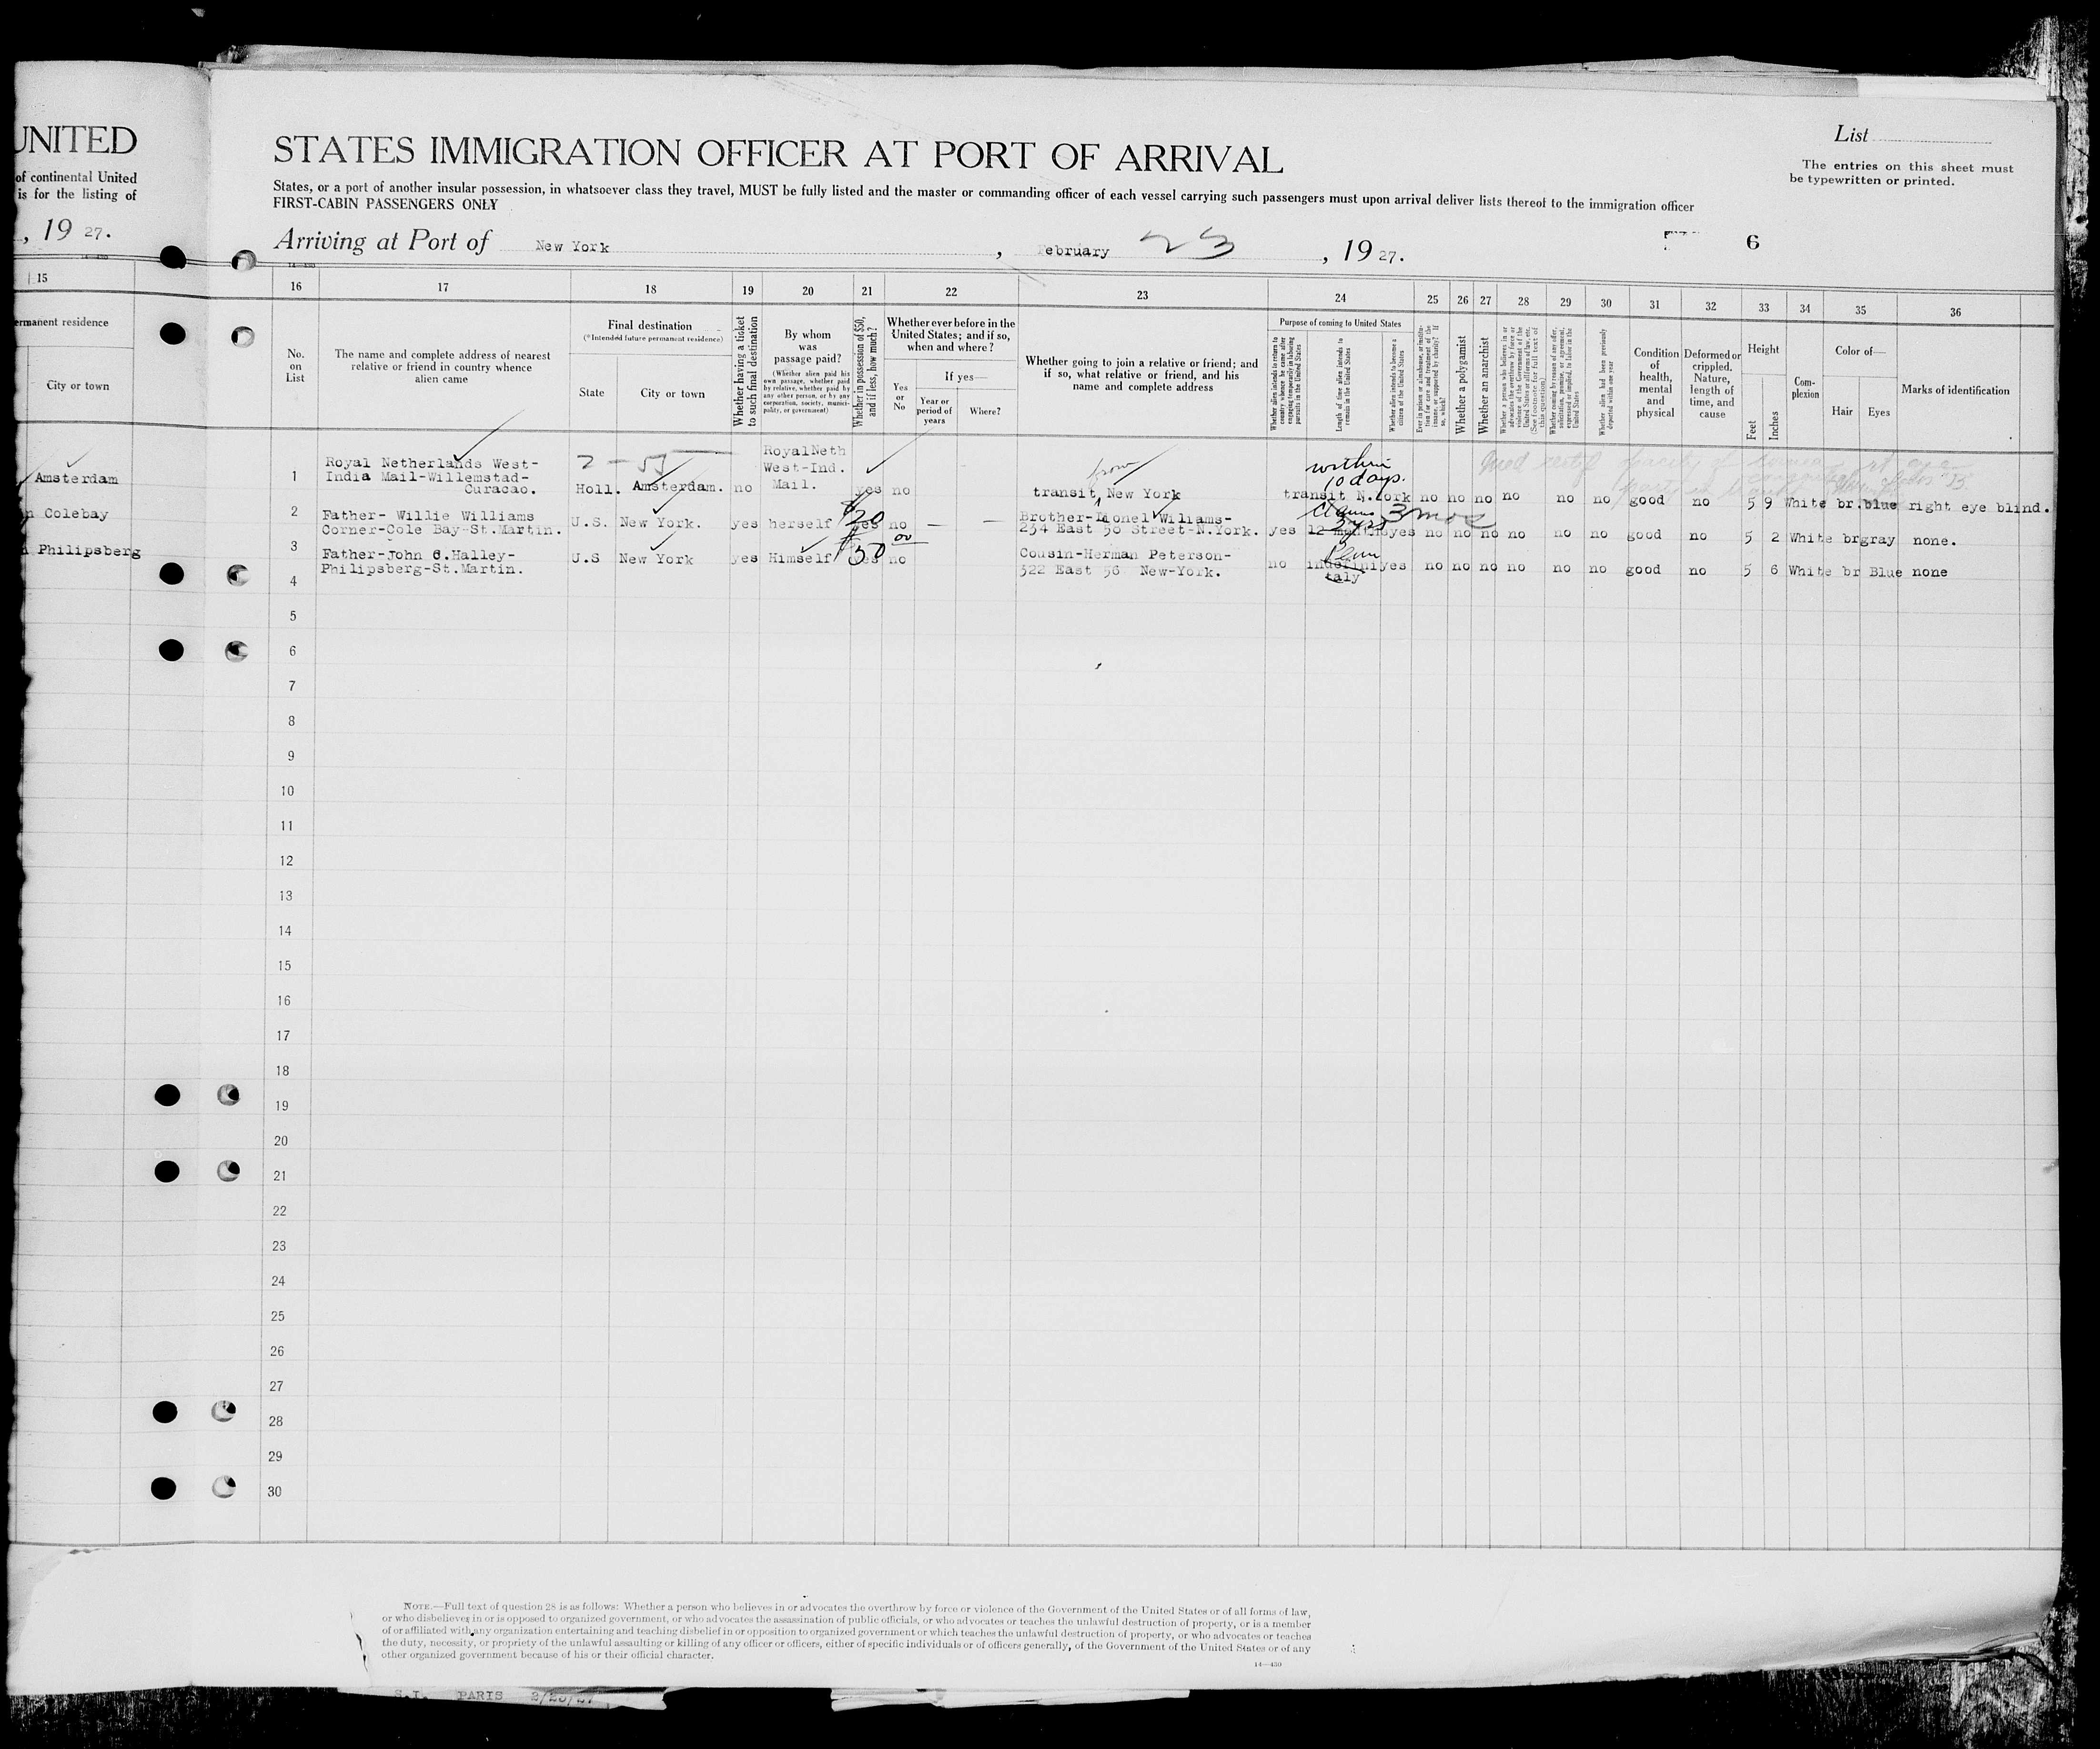 UNITED
of continental United
is for the listing of
, 19 27.
15
ermanent residence
City or town
Amsterdam
n Colebay
Philipsberg
STATES IMMIGRATION OFFICER AT PORT OF ARRIVAL
List
The entries on this sheet must
be typewritten or printed.
States, or a port of another insular possession, in whatsoever class they travel, MUST be fully listed and the master or commanding officer of each vessel carrying such passengers must upon arrival deliver lists thereof to the immigration officer
FIRST-CABIN PASSENGERS ONLY
Arriving at Port of New York, February 23, 19 27.
6
16 17 18 19 20 21 22 23 24 25 26 27 28 29 30 31 32 33 34 35 36
No.
on
List
The name and complete address of nearest
relative or friend in country whence
alien came
Final destination
(*Intended future permanent residence)
State
City or town
Whether having a ticket
to such final destination
By whom
was
passage paid?
(Whether alien paid his
own passage, whether paid
by relative, whether paid by
any other person, or by any
corporation, society, munici-
pality, or government)
Whether in possession of $50,
and if less, how much?
Whether ever before in the
United States; and if so,
when and where?
Yes
or
No
If yes—
Year or
period of
years
Where?
Whether going to join a relative or friend; and
if so, what relative or friend, and his
name and complete address
Purpose of coming to United States
Whether alien intends to return to
country whence he came after
engaging temporarily in laboring
pursuits in the United States
Length of time alien intends to
remain in the United States
Whether alien intends to become a
citizen of the United States
Ever in prison or almshouse, or institu-
tion for care and treatment of the
insane, or supported by charity? If
so, which?
Whether a polygamist
Whether an anarchist
Whether a person who believes in or
advocates the overthrow by force or
violence of the Government of the
United States or all forms of law, etc.
(See footnote for full text of
this question)
Whether coming by reason of any offer,
solicitation, promise, or agreement,
expressed or implied, to labor in the
United States
Whether alien had been previously
deported within one year
Condition
of
health,
mental
and
physical
Deformed or
crippled.
Nature,
length of
time, and
cause
Height
Feet
Inches
Com-
plexion
Color of—
Hair
Eyes
Marks of identification
1
Royal Netherlands West-
India Mail-Willemstad-
Curacao.
Holl. Amsterdam. no
RoyalNeth
West-Ind.
Mail.
yes no
from
transit New York
within
10 days.
transit N.York no no no no no no good no 5 9 White br. blue right eye blind.
2
Father- Willie Williams
Corner-Cole Bay-St.Martin.
U.S. New York. yes herself $20 yes no — —
Brother-Lionel Wiliams-
234 East 50 Street-N.York. yes
Claims 3 mos
12 months yes no no no no no no good no 5 2 White br gray none.
3
Father-John C.Halley-
Philipsberg-St.Martin.
U.S New York yes Himself $50 00 yes no
Cousin-Herman Peterson-
322 East 56 New-York.
no
Perm
indefini
taly
yes no no no no no no good no 5 6 White br Blue none
4
5
6
7
8
9
10
11
12
13
14
15
16
17
18
19
20
21
22
23
24
25
26
27
28
29
30
NOTE.—Full text of question 28 is as follows: Whether a person who believes in or advocates the overthrow by force or violence of the Government of the United States or of all forms of law,
or who disbelieves in or is opposed to organized government, or who advocates the assassination of public officials, or who advocates or teaches the unlawful destruction of property, or is a member
of or affiliated with any organization entertaining and teaching disbelief in or opposition to organized government or which teaches the unlawful destruction of property, or who advocates or teaches
the duty, necessity, or propriety of the unlawful assaulting or killing of any officer or officers, either of specific individuals or of officers generally, of the Government of the United States or of any
other organized government because of his or their official character.
14—430
PARIS